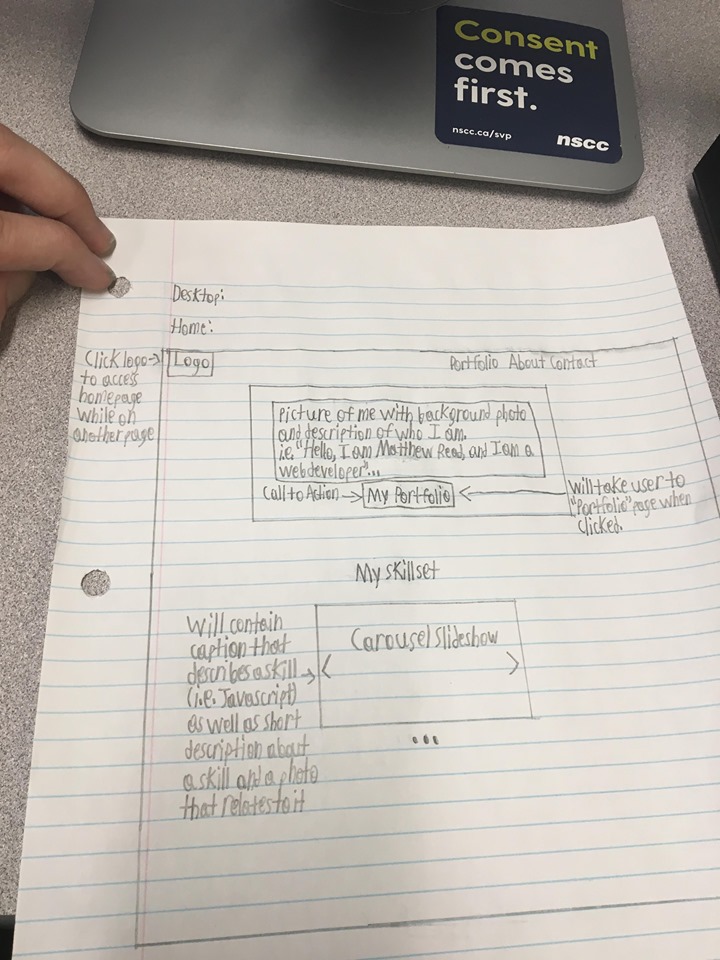 Consent
comes
first.
nscc.ca/svp
nscc
Desktop:
Home:
Click logo→
to access
homepage
while on
another page
Logo
Portfolio About Contact
Picture of me with background photo
and description of who I am.
i.e. "Hello, I am Matthew Read, and I am a
web developer"...
Call to Action →
My Portfolio
Will take user to
"Portfolio" page when
clicked.
My skillset
Will contain
caption that
describes a skill →
(i.e. Javascript)
as well as short
description about
a skill and a photo
that relates to it
Carousel slideshow
< >
...